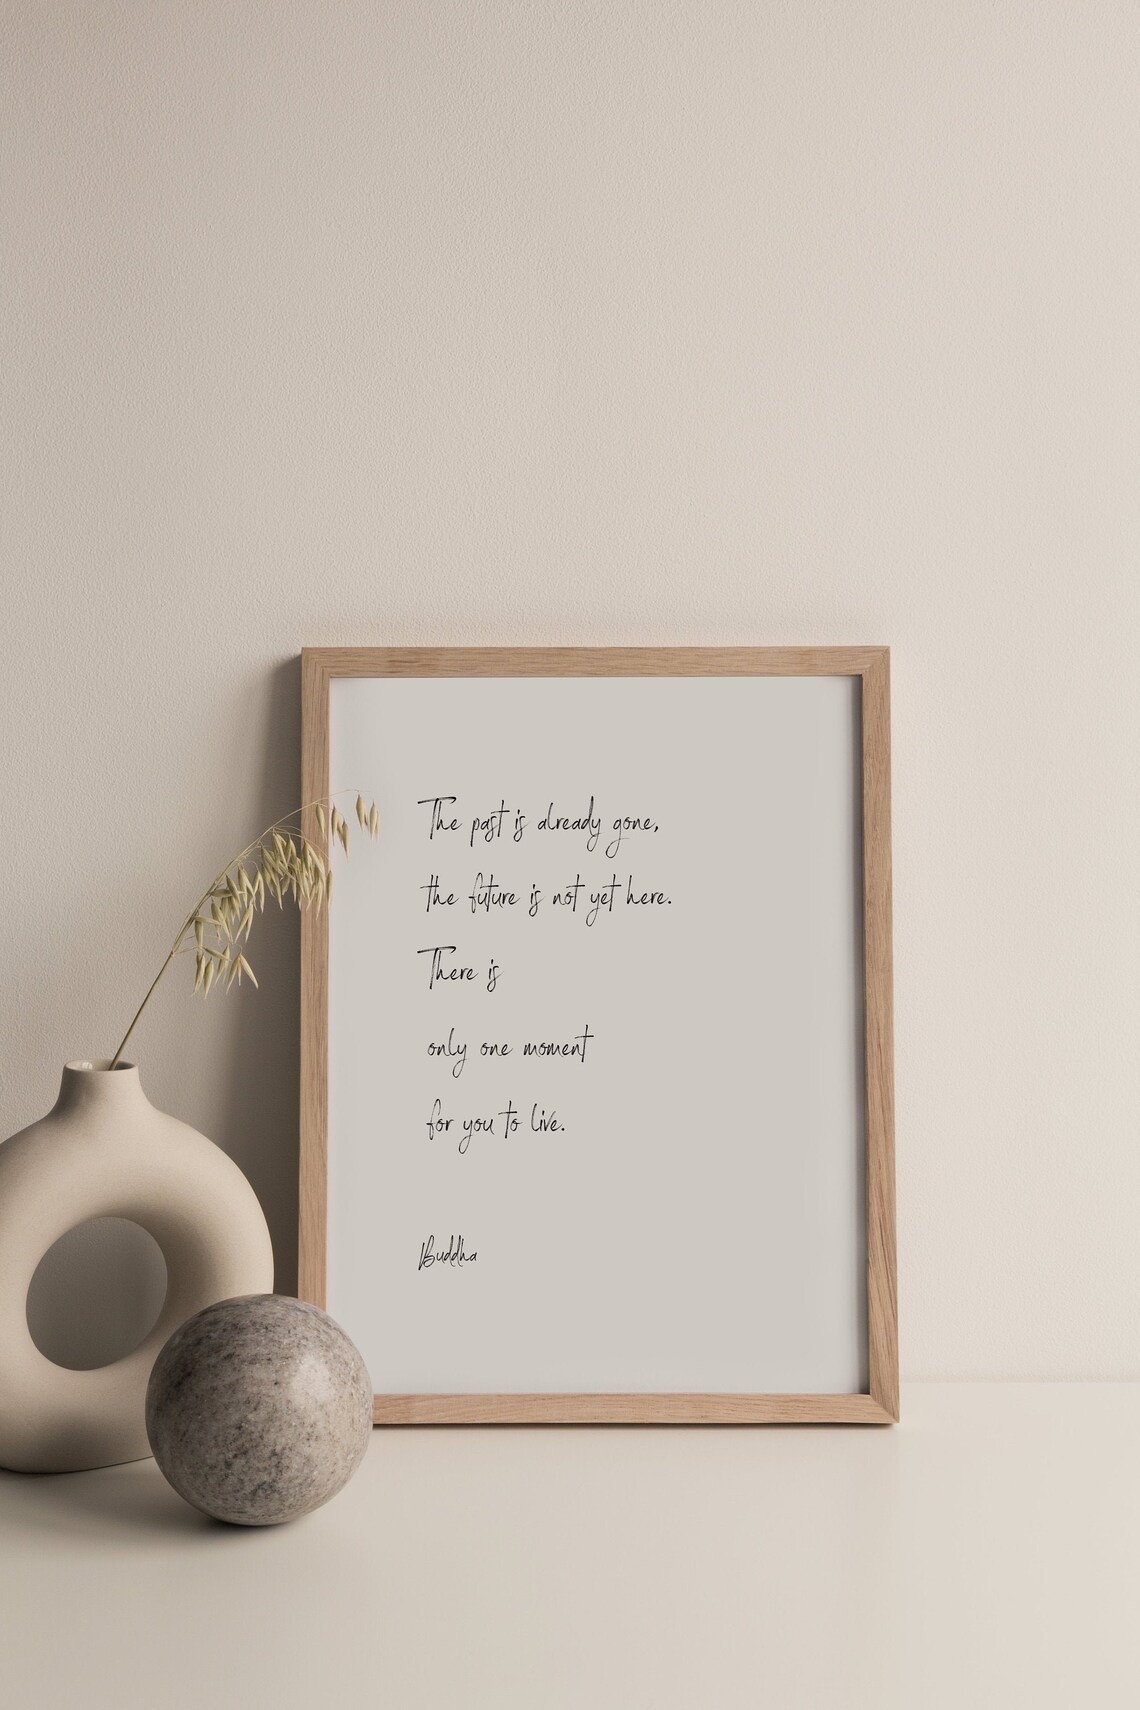 The past is already gone,
the future is not yet here.
There is
only one moment
for you to live.
Buddha